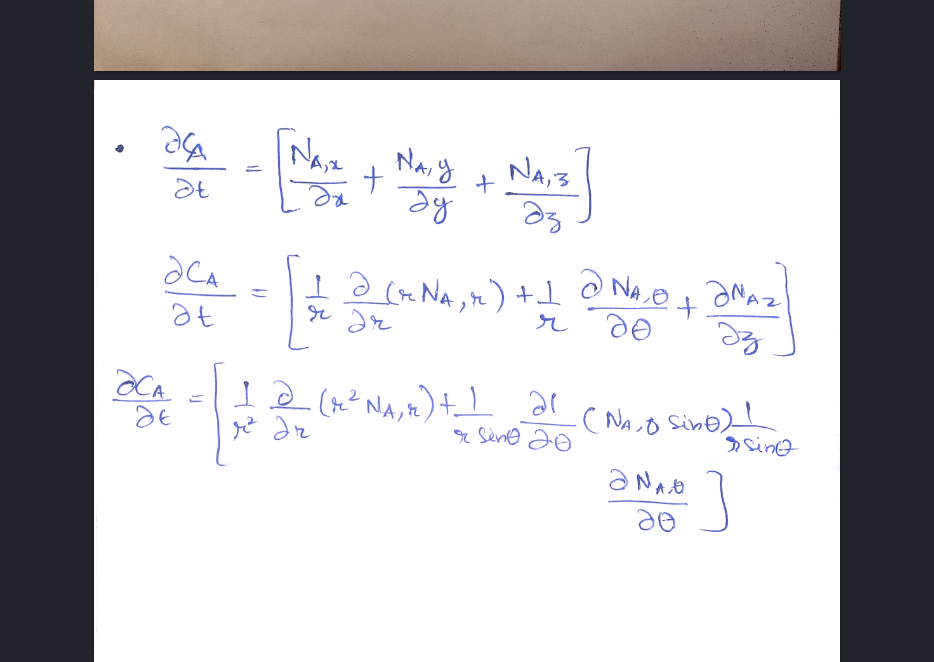 • ∂CA/∂t = [NA,x/∂x + NA,y/∂y + NA,z/∂z]
∂CA/∂t = [1/r ∂/∂r (r NA,r) + 1/r ∂NA,θ/∂θ + ∂NAz/∂z]
∂CA/∂t = [1/r² ∂/∂r (r² NA,r) + 1/r sinθ ∂(/∂θ (NA,θ sinθ) 1/r sinθ
∂NA,θ/∂θ]